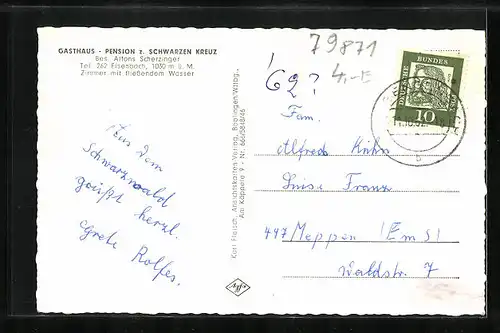 GASTHAUS - PENSION z. SCHWARZEN KREUZ
Bes. Alfons Scherzinger
Tel. 262 Eisenbach, 1050 m ü. M.
Zimmer mit fließendem Wasser
Aus dem
Schwarzwald
grüßt herzl.
Grete Rolfes.
Karl Fleisch, Ansichtskarten-Verlag,
Am Käppele 9 - Nr. 666/5848/46
Agfa
79871
4,-E
62?
DEUTSCHE
BUNDES
10
b
Fam.
Alfred Kühn
Luise Franz
447 Meppen (Ems)
Waldstr. 7